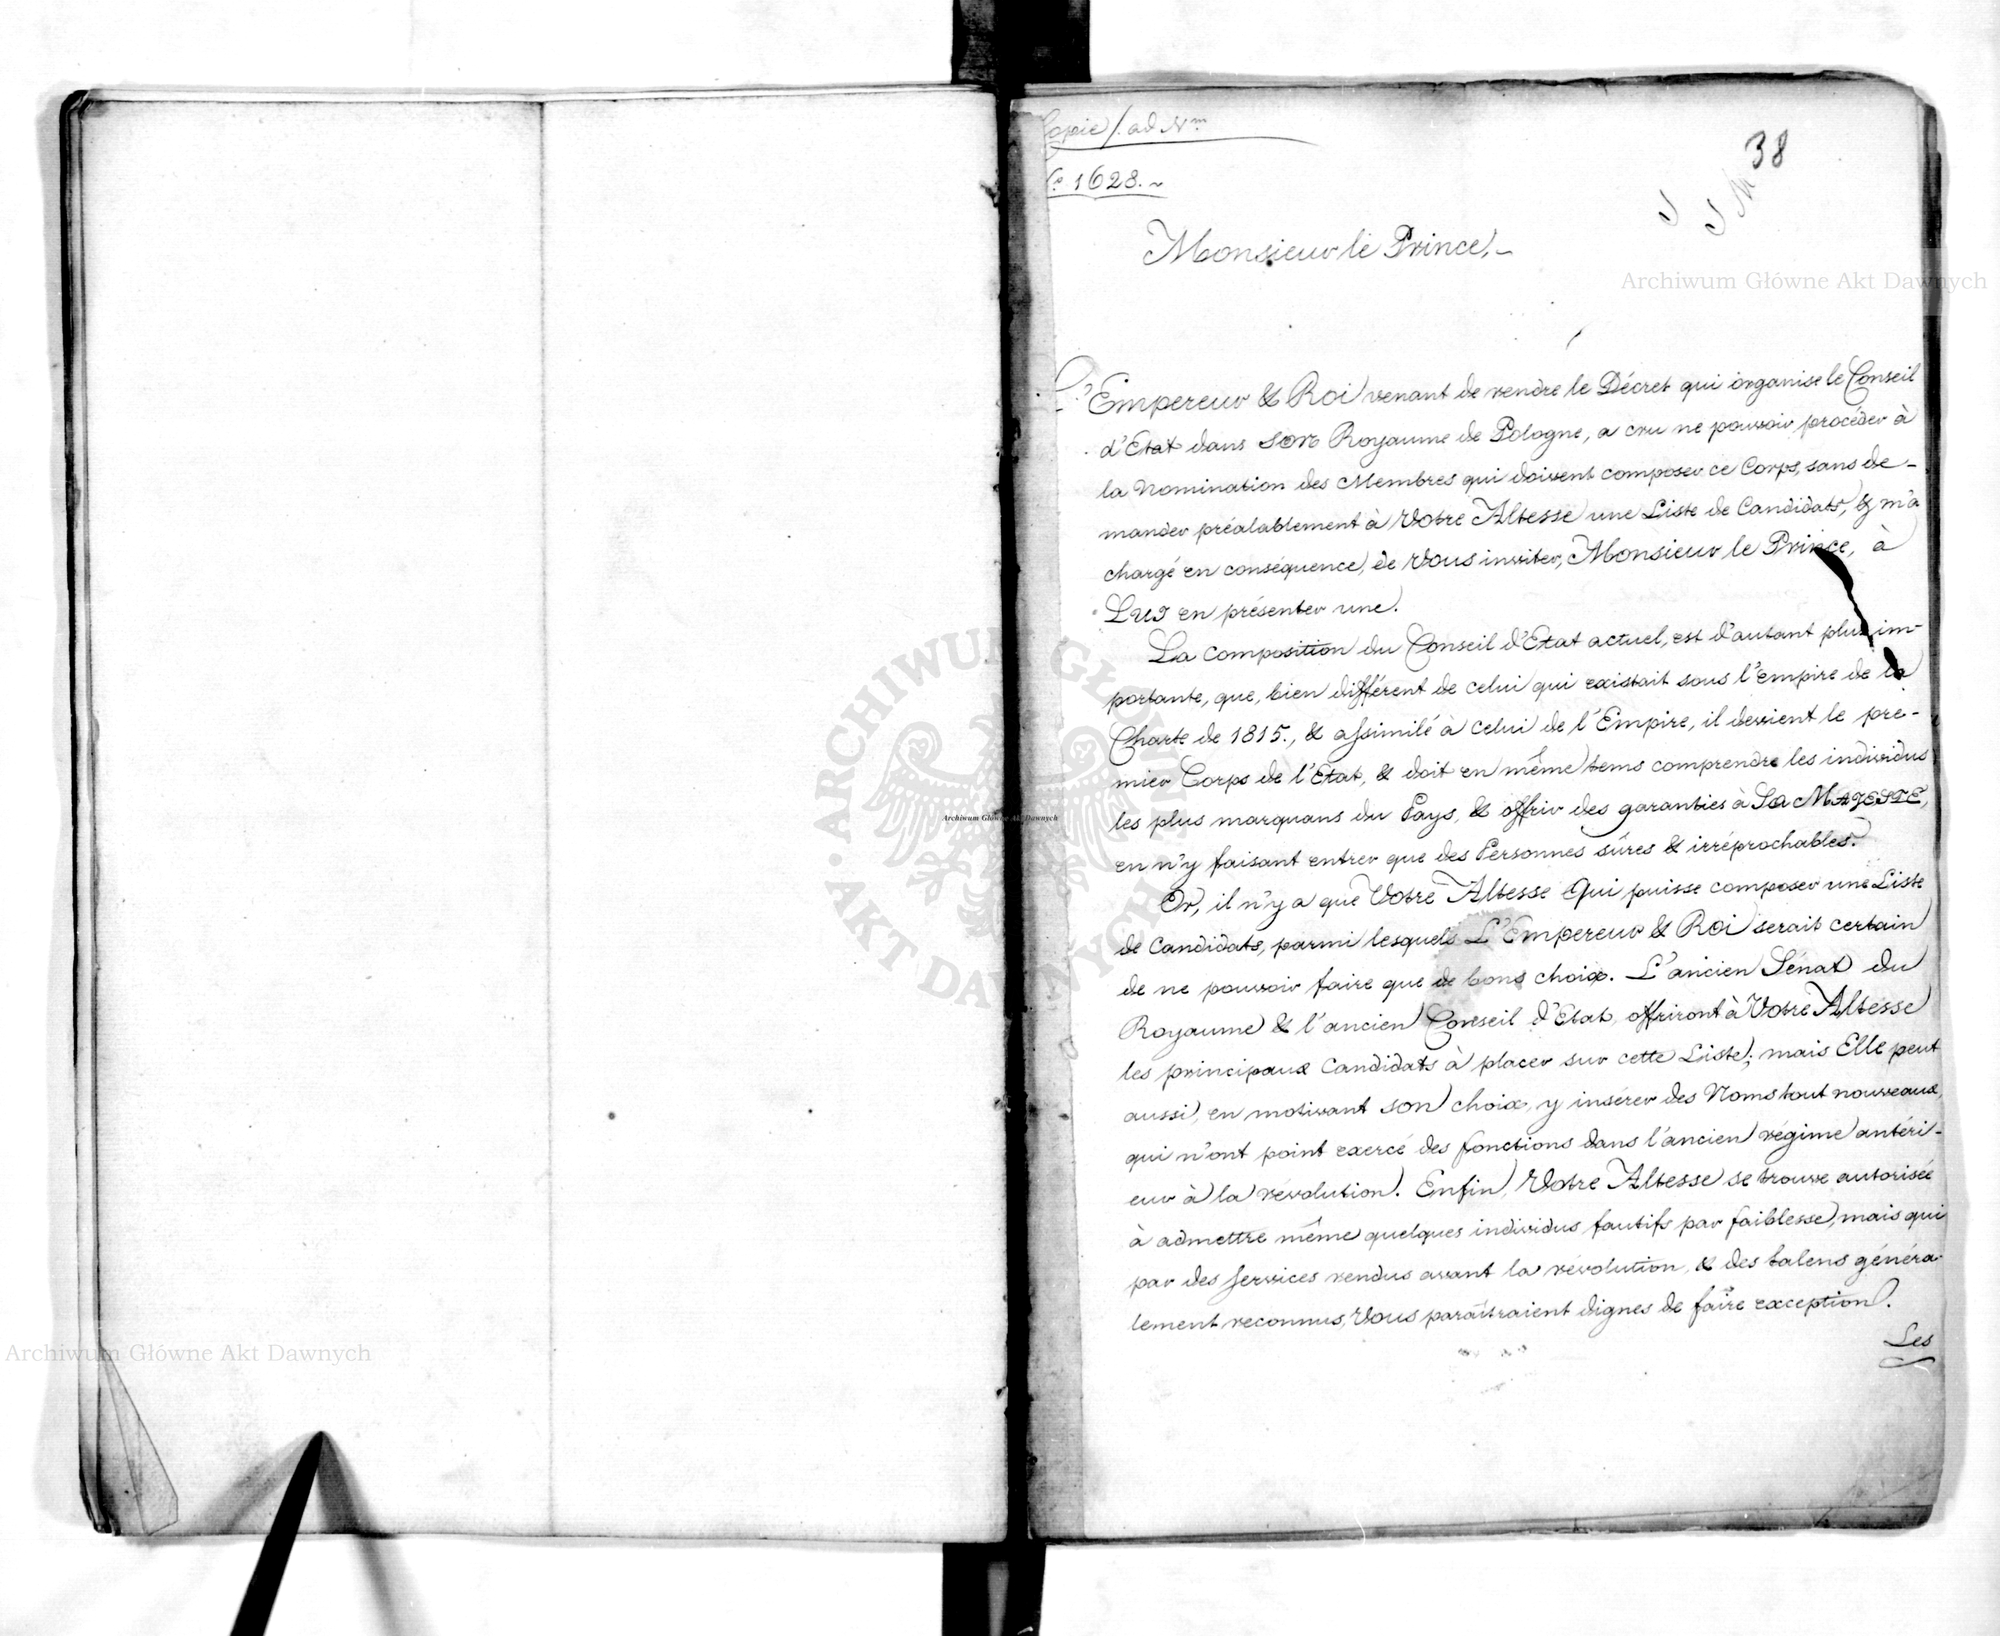 Copie / ad Nm
No 1628.~
38
Monsieur le Prince,~
Archiwum Główne Akt Dawnych
L'Empereur & Roi venant de rendre le Décret qui organise le Conseil
d'Etat dans Son Royaume de Pologne, a cru ne pouvoir procéder à
la Nomination des Membres qui doivent composer ce Corps, sans de-
mander préalablement à Votre Altesse une Liste de Candidats, & m'a
chargé en conséquence, de Vous inviter, Monsieur le Prince, à
Lui en présenter une.
La composition du Conseil d'Etat actuel, est d'autant plus im-
portante, que, bien différent de celui qui existait sous l'empire de la
Charte de 1815., & assimilé à celui de l'Empire, il devient le pre-
mier Corps de l'Etat, & doit en même tems comprendre les individus
les plus marquans du Pays, & offrir des garanties à Sa MAJESTÉ,
en n'y faisant entrer que des Personnes sûres & irréprochables.
Or, il n'y a que Votre Altesse Qui puisse composer une Liste
de Candidats, parmi lesquels L'Empereur & Roi serait certain
de ne pouvoir faire que de bons choix. L'ancien Sénat du
Royaume & l'ancien Conseil d'Etat, offriront à Votre Altesse
les principaux Candidats à placer sur cette Liste; mais Elle peut
aussi, en motivant son choix, y insérer des Noms tout nouveaux,
qui n'ont point exercé des fonctions dans l'ancien régime antéri-
eur à la révolution. Enfin, Votre Altesse se trouve autorisée
à admettre même quelques individus fautifs par faiblesse, mais qui
par des services rendus avant la révolution, & des talens généra-
lement reconnus, Vous paraîtraient dignes de faire exception.
Les
ARCHIWUM GŁÓWNE AKT DAWNYCH
Archiwum Główne Akt Dawnych
Archiwum Główne Akt Dawnych